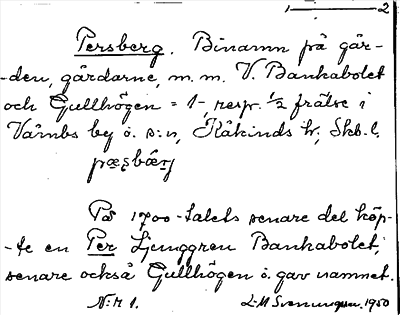 1 — 2
Persberg. Binamn på går-
-den, gårdarne, m.m. V. Bankabolet
och Gullhögen = 1-, resp. ½ frälse i
Värnbs by o. s:n, Kåkinds hr, Skb. l.
pæʂbærj
På 1700-talets senare del köp-
-te en Per Ljunggren Bankabolet,
senare också Gullhögen o. gav namnet.
N:r 1. L. M. Svenungsson. 1950